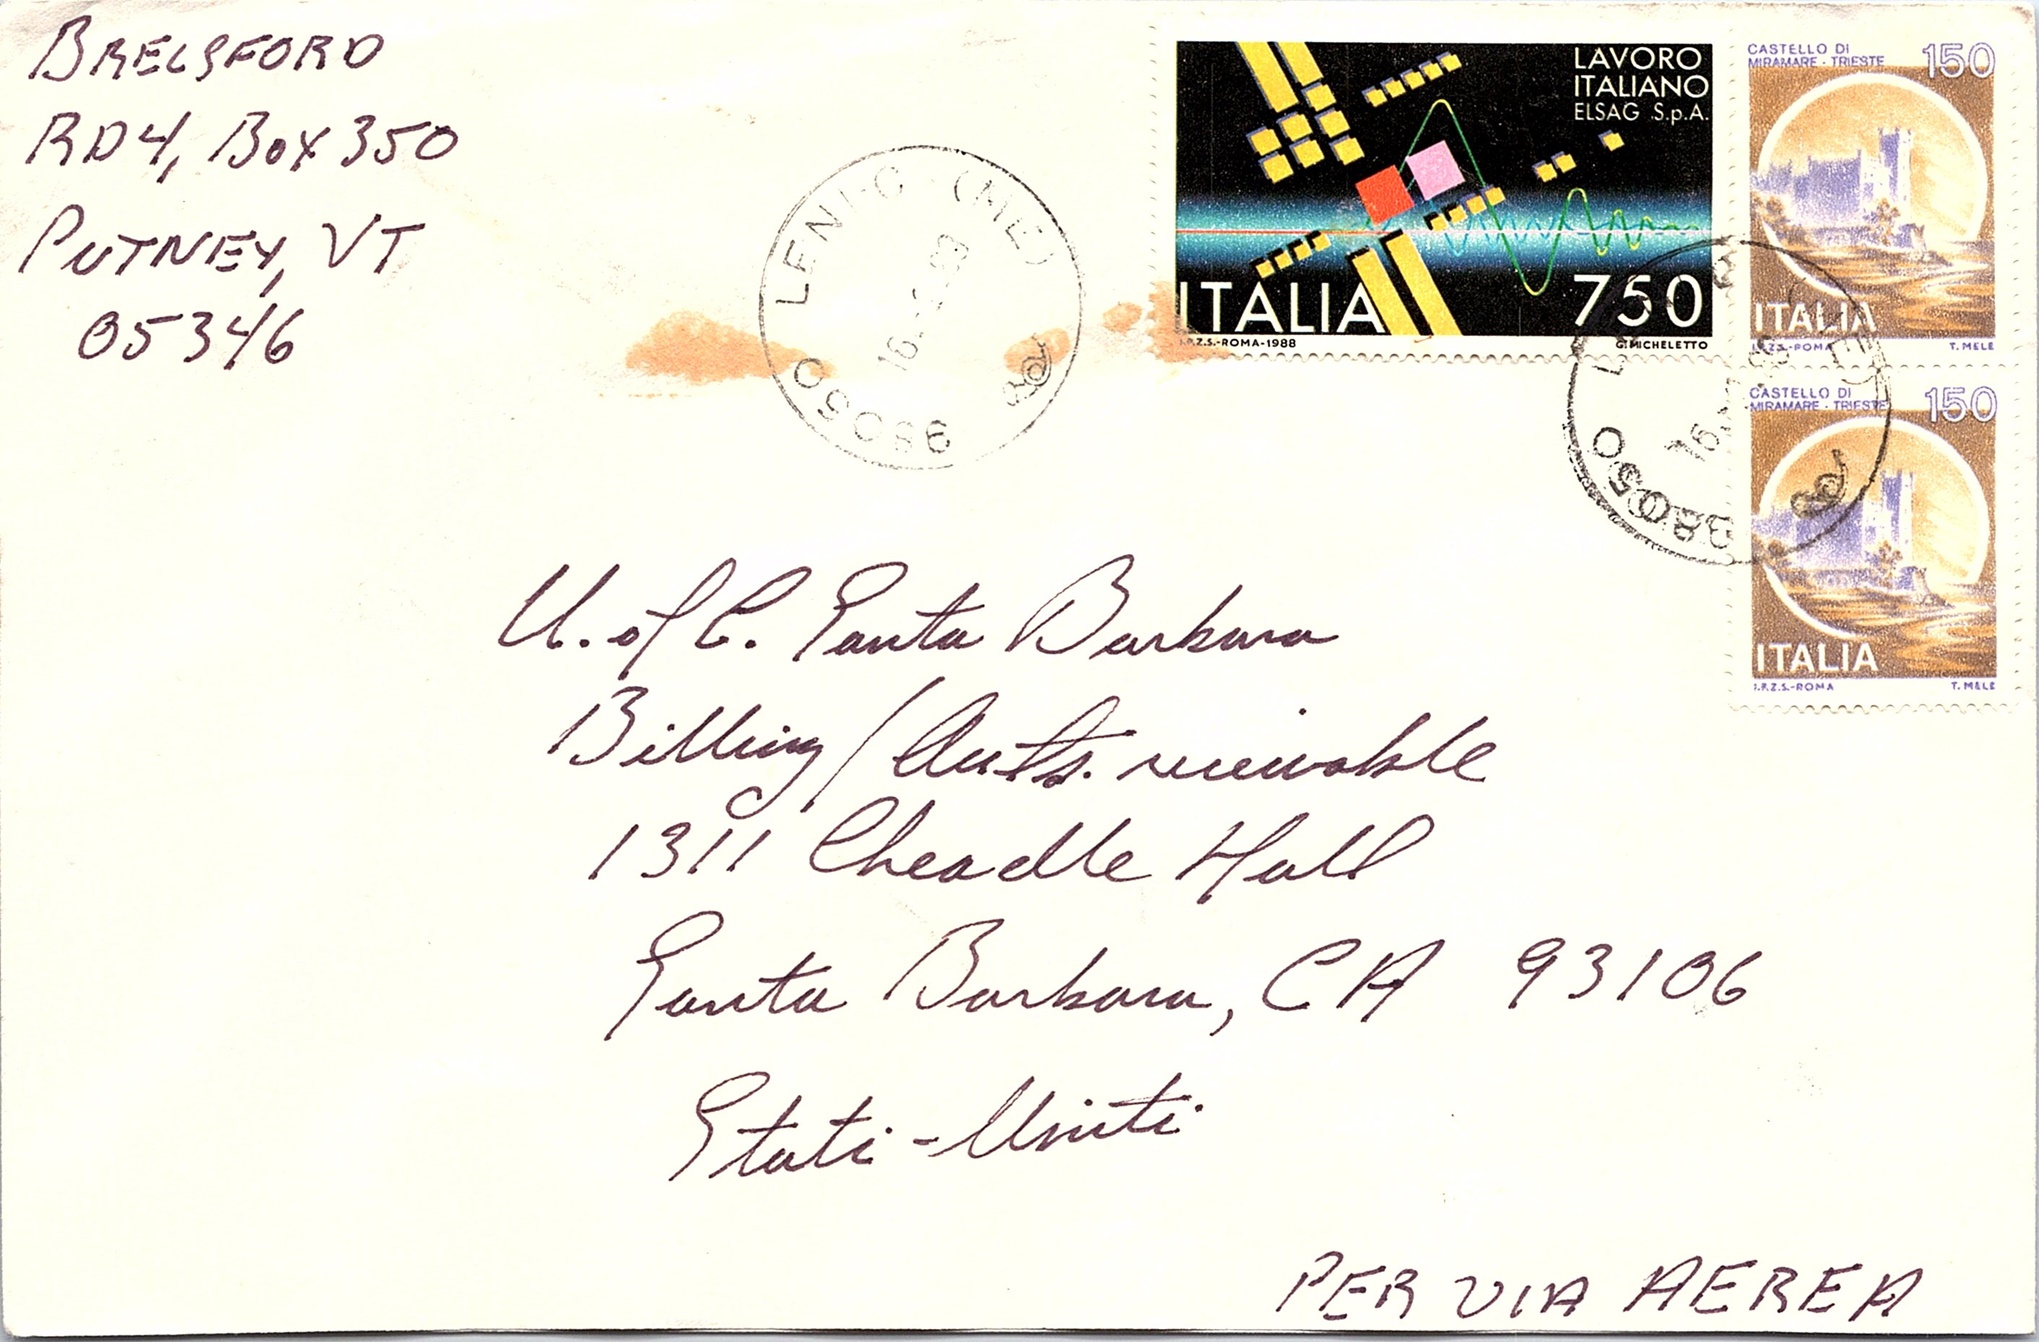 BRELSFORD
RD4, BOX 350
PUTNEY, VT
05346
LENI-C (ME)
98050
LAVORO
ITALIANO
ELSAG S.p.A.
ITALIA 750
I.P.Z.S.-ROMA-1988 G. MICHELETTO
CASTELLO DI
MIRAMARE - TRIESTE 150
ITALIA
I.P.Z.S.-ROMA T. MELE
CASTELLO DI
MIRAMARE - TRIESTE 150
ITALIA
I.P.Z.S.-ROMA T. MELE
98050
U. of C. Santa Barbara
Billing/Accts. receivable
1311 Cheadle Hall
Santa Barbara, CA 93106
Stati-Uniti
PER VIA AEREA